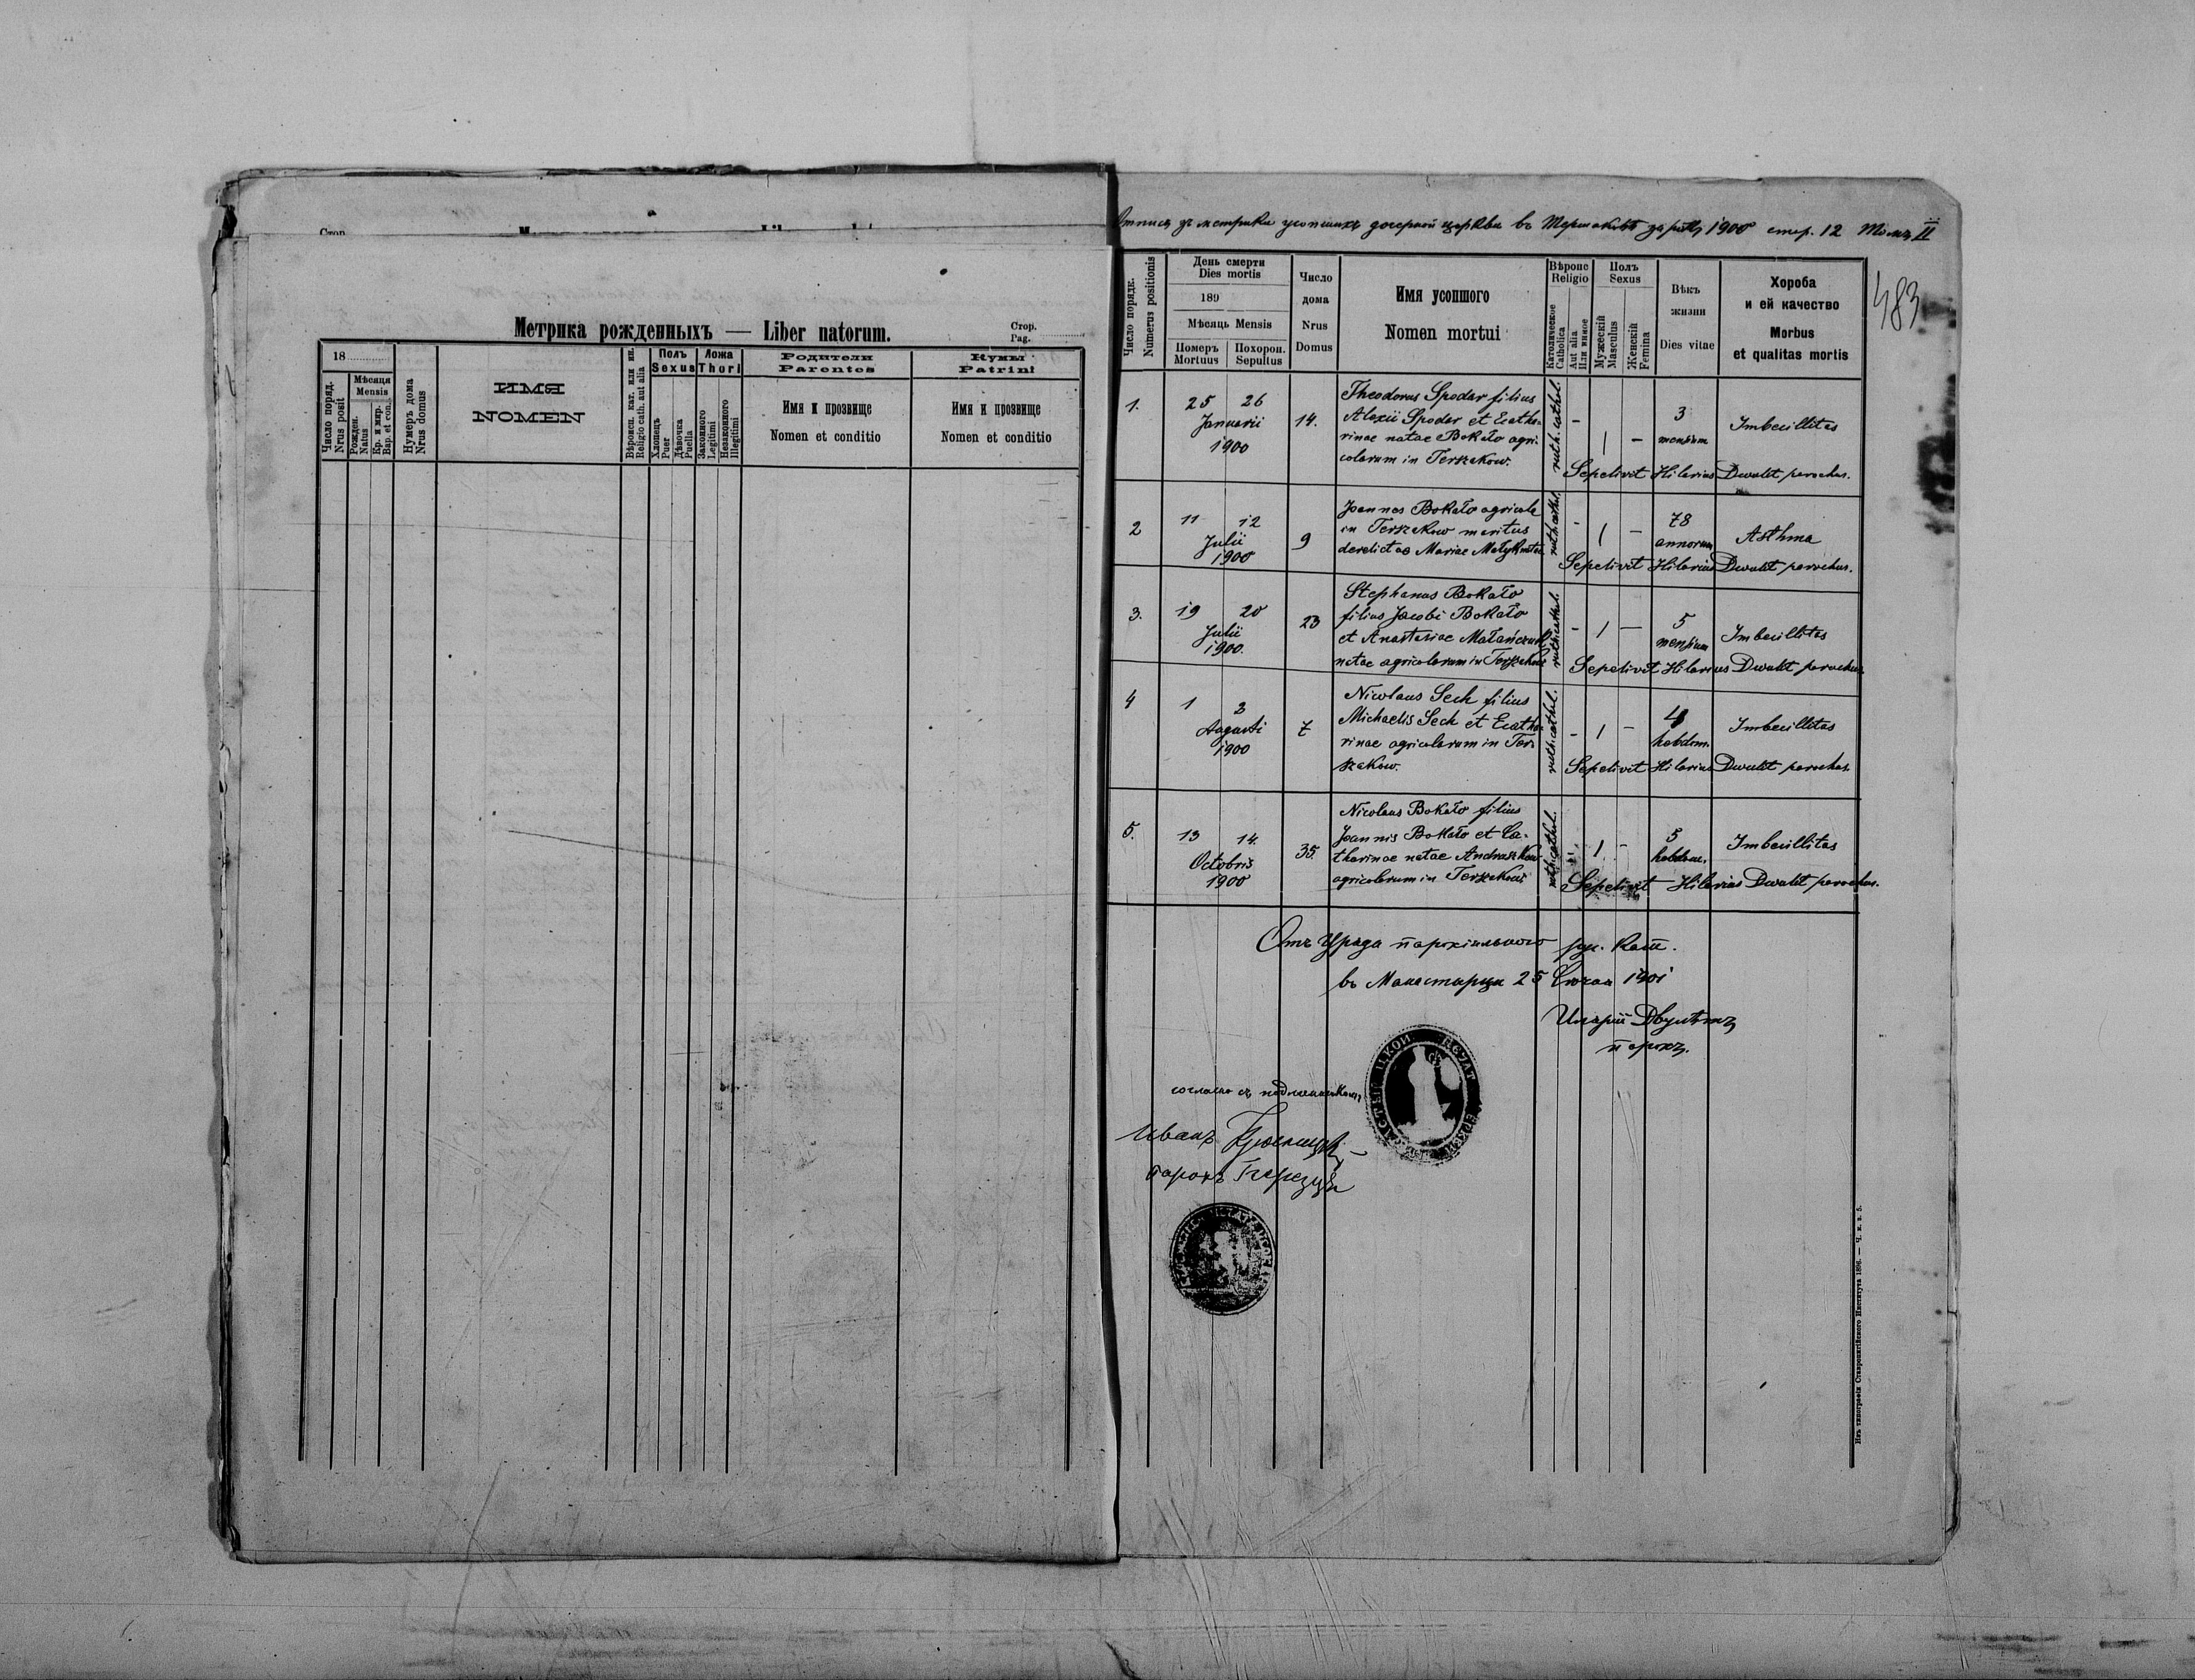 Стор.
Метрика рожденныхъ — Liber natorum.
Стор.
Pag.
18
Число поряд.
Nrus posit
Мѣсяця
Mensis
Рожден.
Natus
Кр. и мир.
Bap. et con.
Нумеръ дома
Nrus domus
ИМЯ
NOMEN
Вѣроисп. кат. или ин.
Religio cath. aut alia
Полъ
Sexus
Хлопецъ
Puer
Дѣвочка
Puella
Ложа
Thori
Законного
Legitimi
Незаконного
Illegitimi
Родители
Parentes
Имя и прозвище
Nomen et conditio
Кумы
Patrini
Имя и прозвище
Nomen et conditio
Отпись зъ метрики усопшихъ дочерной церкви въ Тершаковѣ за рокъ 1900 стор. 12 Томъ II
483
Число порядк.
Numerus positionis
День смерти
Dies mortis
189
Мѣсяць Mensis
Померъ
Mortuus
Похорон.
Sepultus
Число
дома
Nrus
Domus
Имя усопшого
Nomen mortui
Вѣроис
Religio
Католическое
Catholica
Aut alia
Или инное
Полъ
Sexus
Мужескій
Masculus
Женскій
Femina
Вѣкъ
жизни
Dies vitae
Хороба
и ей качество
Morbus
et qualitas mortis
1.
25 26
Januarii
1900
14.
Theodorus Spodar filius
Alexii Spodar et Catha-
rinae natae Bokało agri-
colarum in Terszakow.
ruth. cathol.
- 1 -
3
mensium
Imbecillitas
Sepelivit Hilarius Dwulit parochus.
2
11 12
Julii
1900
9
Joannes Bokało agricola
in Terszakow maritus
derelictae Mariae
ruth. cathol.
- 1 -
78
annorum
Asthma
Sepelivit Hilarius Dwulit parochus.
3.
19 20
Julii
1900.
23
Stephanus Bokało
filius Jacobi Bokało
et Anastasiae Matańczuk
natae agricolarum in Terszakow
ruth. cathol.
- 1 -
5
mensium
Imbecillitas
Sepelivit Hilarius Dwulit parochus
4
1 3
Augusti
1900
7
Nicolaus Sech filius
Michaelis Sech et Catha-
rinae agricolarum in Ter-
szakow.
ruth. cathol.
- 1 -
4
hebdom.
Imbecillitas
Sepelivit Hilarius Dwulit parochus.
5.
13 14.
Octobris
1900
35.
Nicolaus Bokało filius
Joannis Bokało et Ca-
tharinae natae Andruszkow
agricolarum in Terszakow
ruth. cathol.
- 1 -
5
hebdom.
Imbecillitas
Sepelivit Hilarius Dwulit parochus.
Отъ Уряда парохіального гр. кат.
въ Манастырци 25 Січня 1901
Иларій Двулѣтъ
парохъ.
согласно съ подлинникомъ
Иванъ
парохъ
Изъ типографіи Ставропигійского Института 1896. — Ч. к. в. 5.